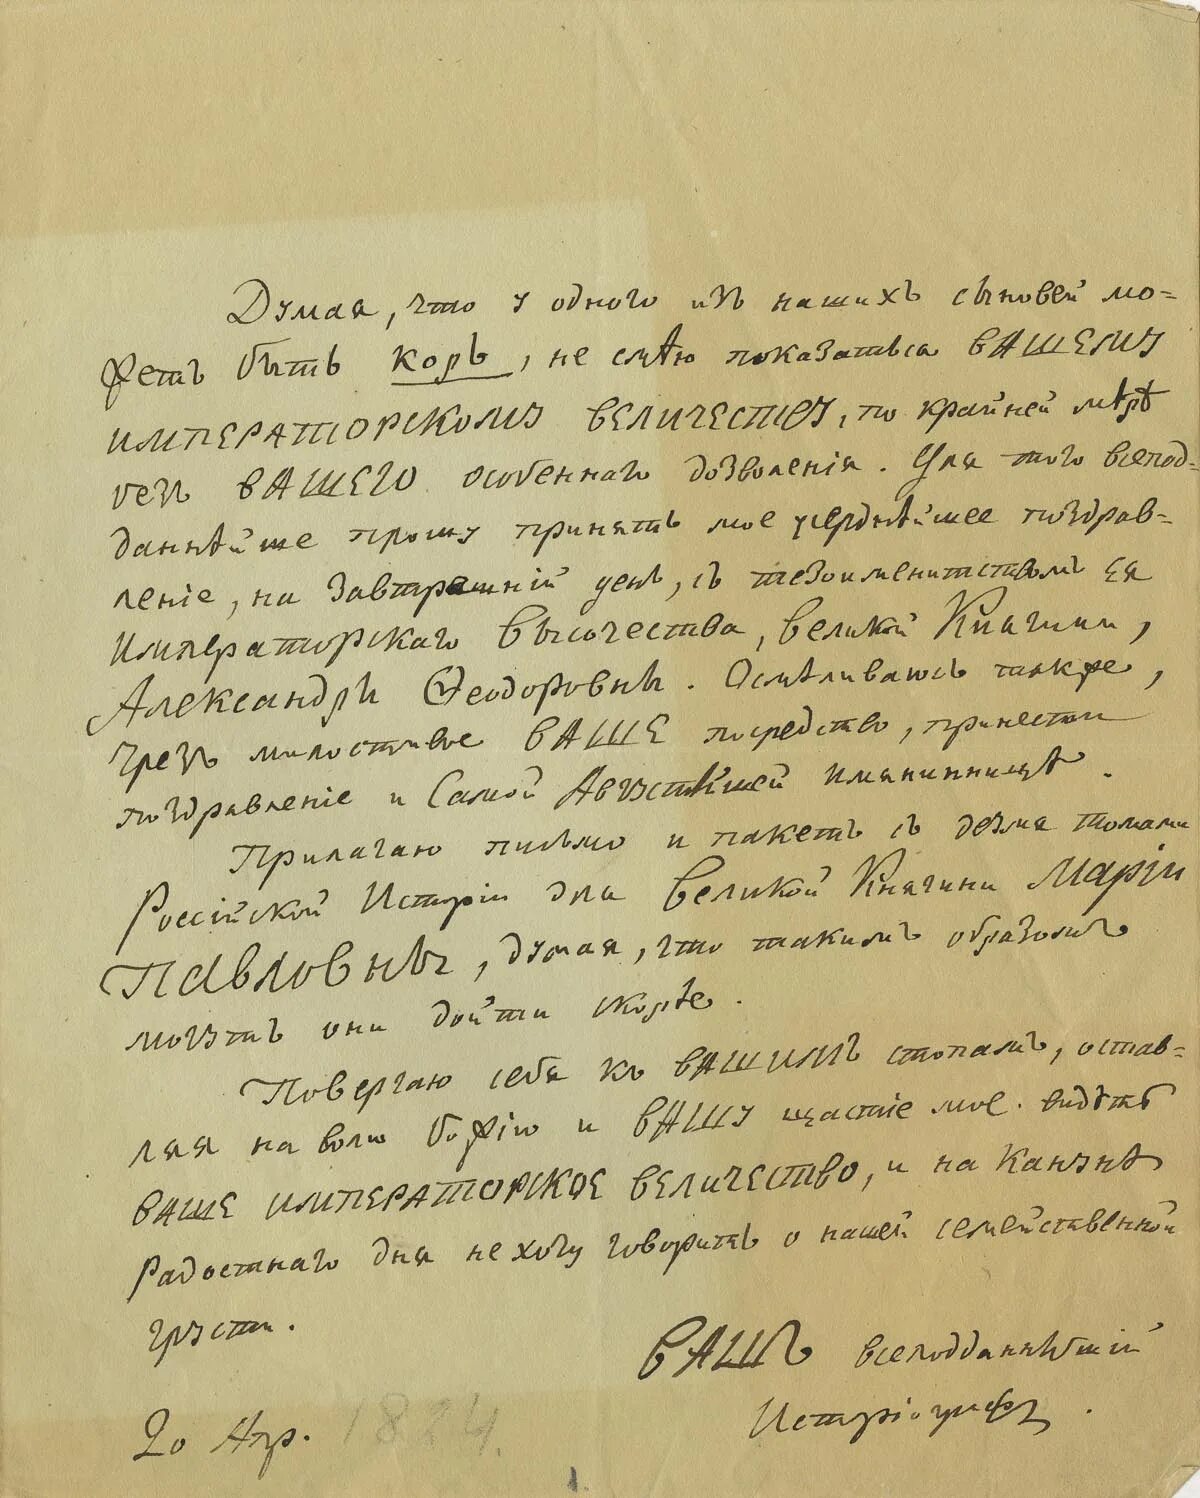 Думая, что у одного изъ нашихъ сыновей мо-
жетъ быть корь, не смѣю показаться ВАШЕМУ
ИМПЕРАТОРСКОМУ ВЕЛИЧЕСТВУ, по крайней мѣрѣ
безъ ВАШЕГО особеннаго дозволенія. Для того всепод-
даннѣйше прошу принять мое усерднѣйшее поздрав-
леніе, на завтрашній день, съ тезоименитствомъ ЕЯ
Императорскаго Высочества, Великой Княгини,
Александры Ѳеодоровны. Осмѣливаюсь также,
чрезъ милостивое ВАШЕ посредство, принести
поздравленіе и Самой Августѣйшей имянинницѣ.
Прилагаю письмо и пакетъ съ двумя томами
Россійской Исторіи для Великой Княгини Маріи
Павловны, думая, что такимъ образомъ
могутъ они дойти скорѣе.
Повергаю себя къ ВАШИМЪ стопамъ, остав-
ляя на волю Божію и ВАШУ щастіе мое видѣть
ВАШЕ ИМПЕРАТОРСКОЕ ВЕЛИЧЕСТВО, и на канунѣ
радостнаго дня не хочу говорить о нашей семейственной
грусти.
ВАШЪ всеподданнѣйшій
Исторіографъ.
20 Апр. 1824.
1.